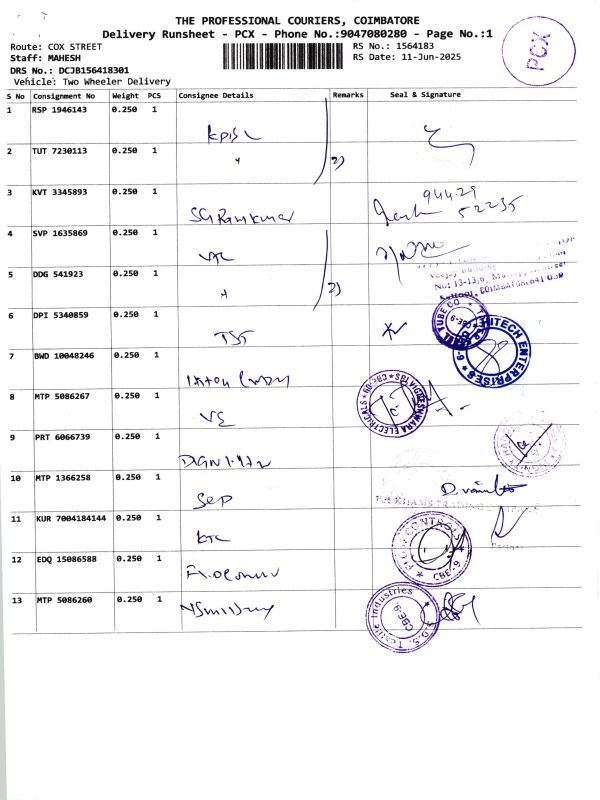 THE PROFESSIONAL COURIERS, COIMBATORE
Delivery Runsheet - PCX - Phone No.:9047080280 - Page No.:1
PCX
Route: COX STREET
RS No.: 1564183
Staff: MAHESH
RS Date: 11-Jun-2025
DRS No.: DCJB156418301
Vehicle: Two Wheeler Delivery
S No Consignment No Weight PCS Consignee Details Remarks Seal & Signature
1 RSP 1946143 0.250 1
2 TUT 7230113 0.250 1
2)
3 KVT 3345893 0.250 1
94429
SGRamkumar
52235
4 SVP 1635869 0.250 1
5 DDG 541923 0.250 1
2)
6 DPI 5340859 0.250 1
TUBE CO
HITECH ENTERPRISES
TST
7 BWD 10048246 0.250 1
SRI VIGNESHWARA ELECTRICALS
8 MTP 5086267 0.250 1
VE
9 PRT 6066739 0.250 1
10 MTP 1366258 0.250 1
SEP
11 KUR 7004184144 0.250 1
Partner
KTC
FLOW CONTROLS
CBE-9
12 EDQ 15086588 0.250 1
13 MTP 5086260 0.250 1
S.D.S. Textile Industries
CBE-9